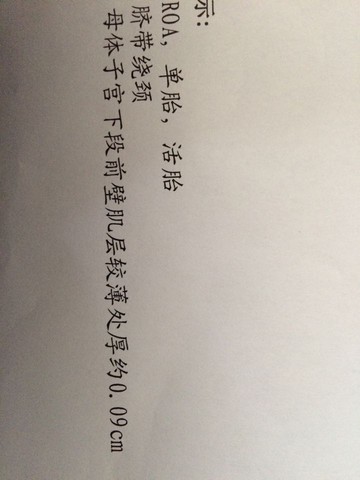 示:
ROA, 单胎, 活胎
脐带绕颈
母体子宫下段前壁肌层较薄处厚约0.09cm